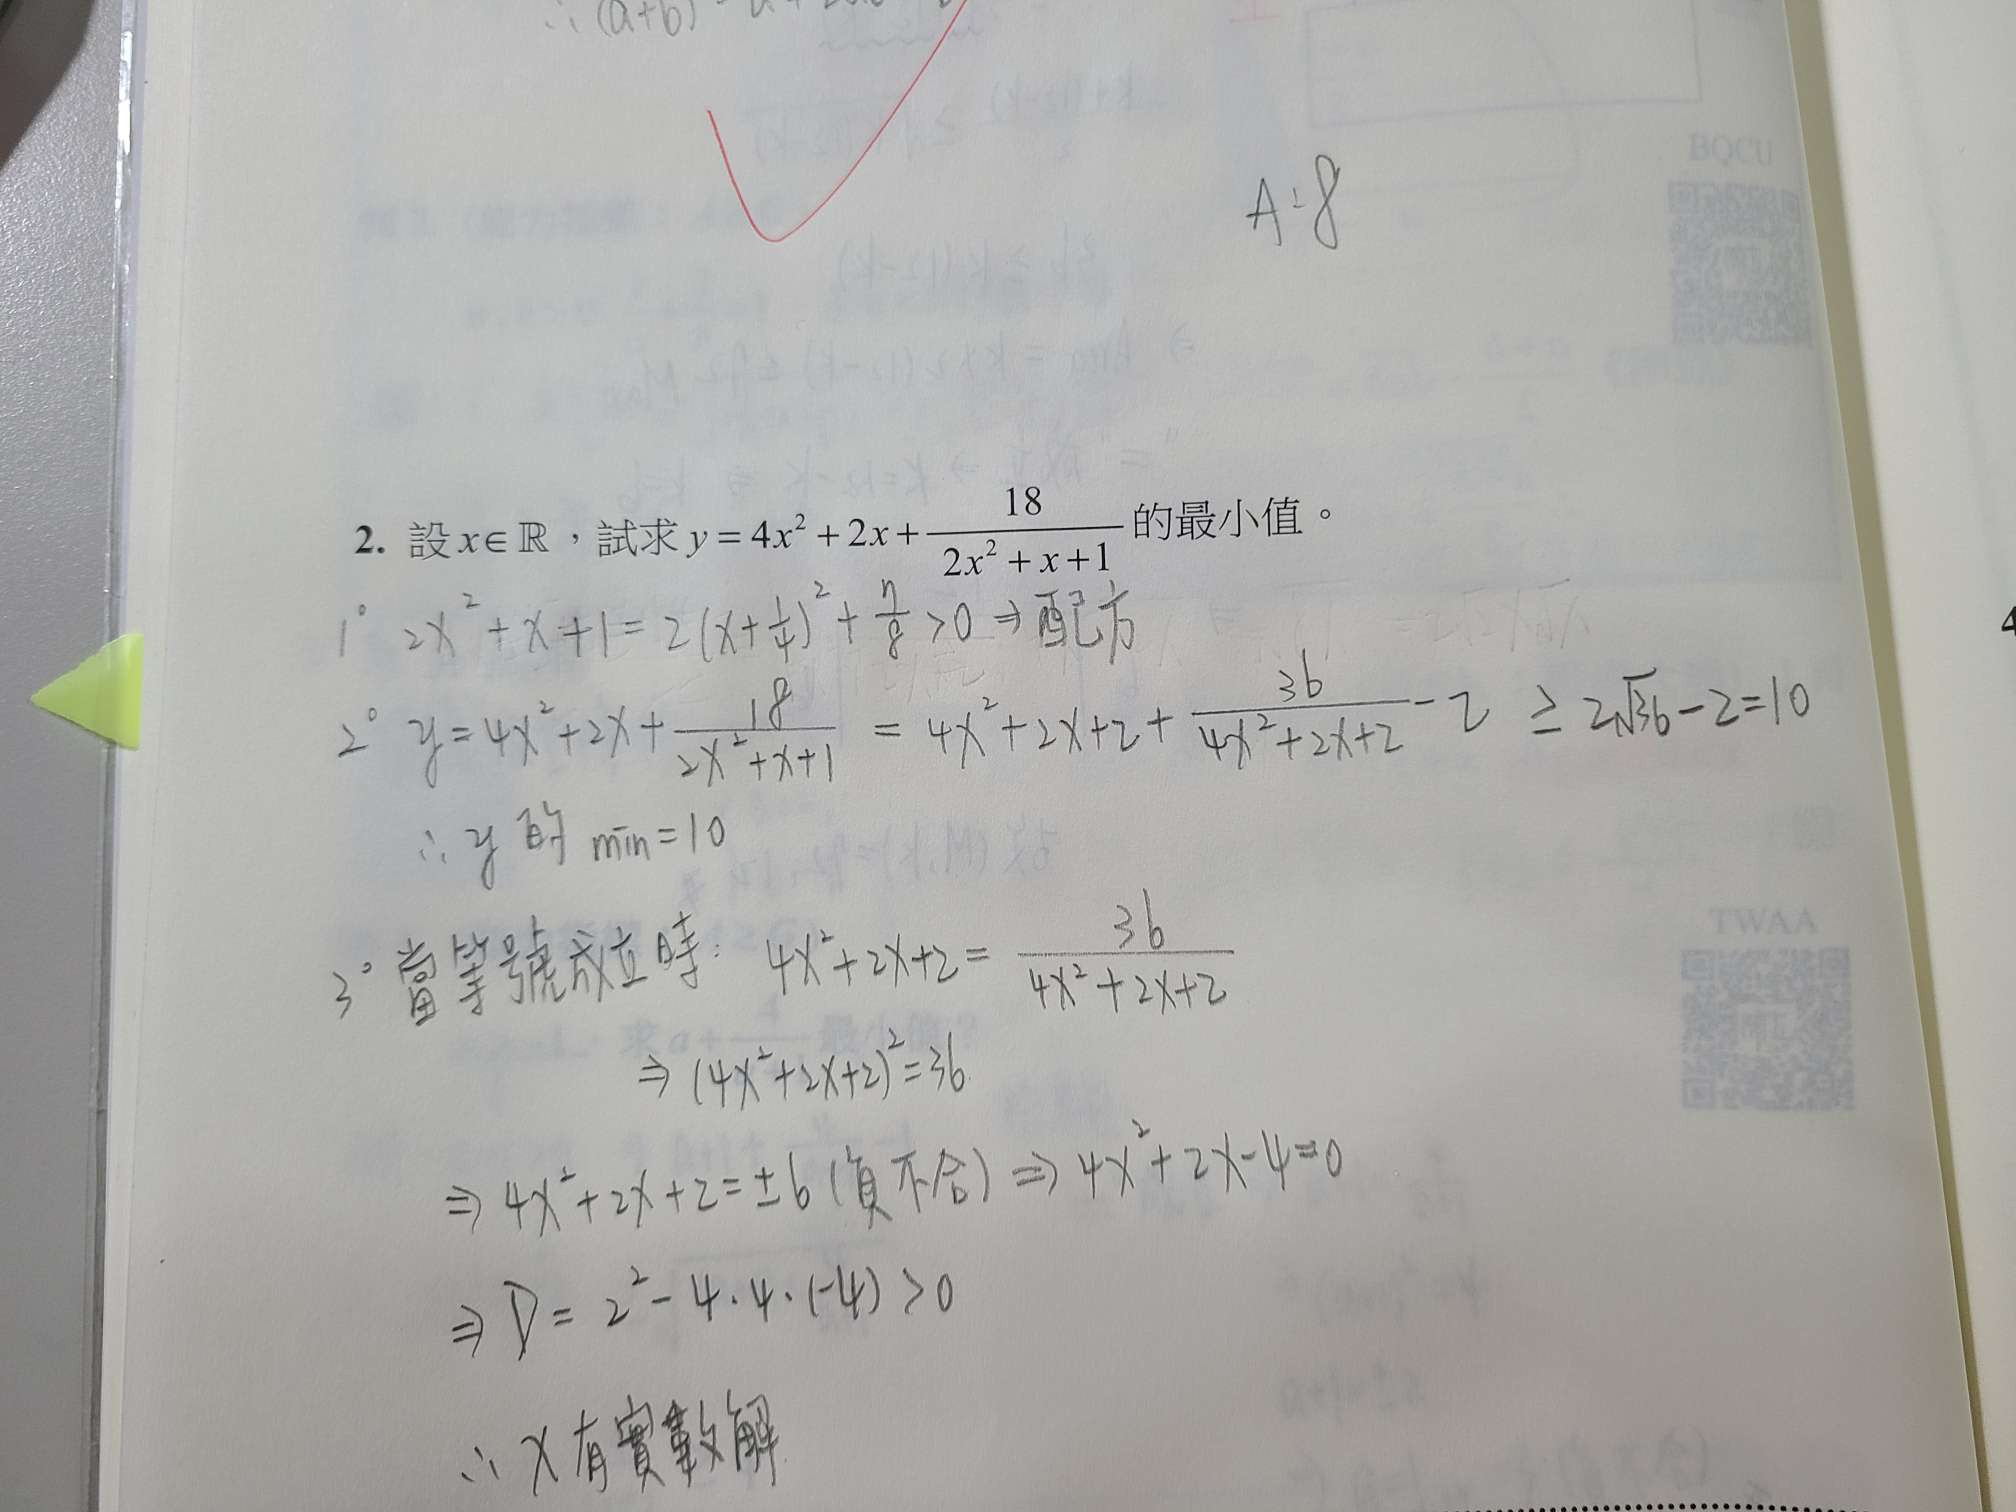 ∴(a+b)
A=8
BQCU
2. 設 x∈ℝ，試求 y = 4x² + 2x + 18/(2x² + x + 1) 的最小值。
1° 2x² + x + 1 = 2(x + 1/4)² + 7/8 > 0 ⇒ 配方
4
2° y = 4x² + 2x + 18/(2x² + x + 1) = 4x² + 2x + 2 + 36/(4x² + 2x + 2) - 2 ≥ 2√36 - 2 = 10
∴ y 的 min = 10
TWAA
3° 當等號成立時： 4x² + 2x + 2 = 36/(4x² + 2x + 2)
⇒ (4x² + 2x + 2)² = 36
⇒ 4x² + 2x + 2 = ±6 (負不合) ⇒ 4x² + 2x - 4 = 0
⇒ D = 2² - 4·4·(-4) > 0
∴ x 有實數解